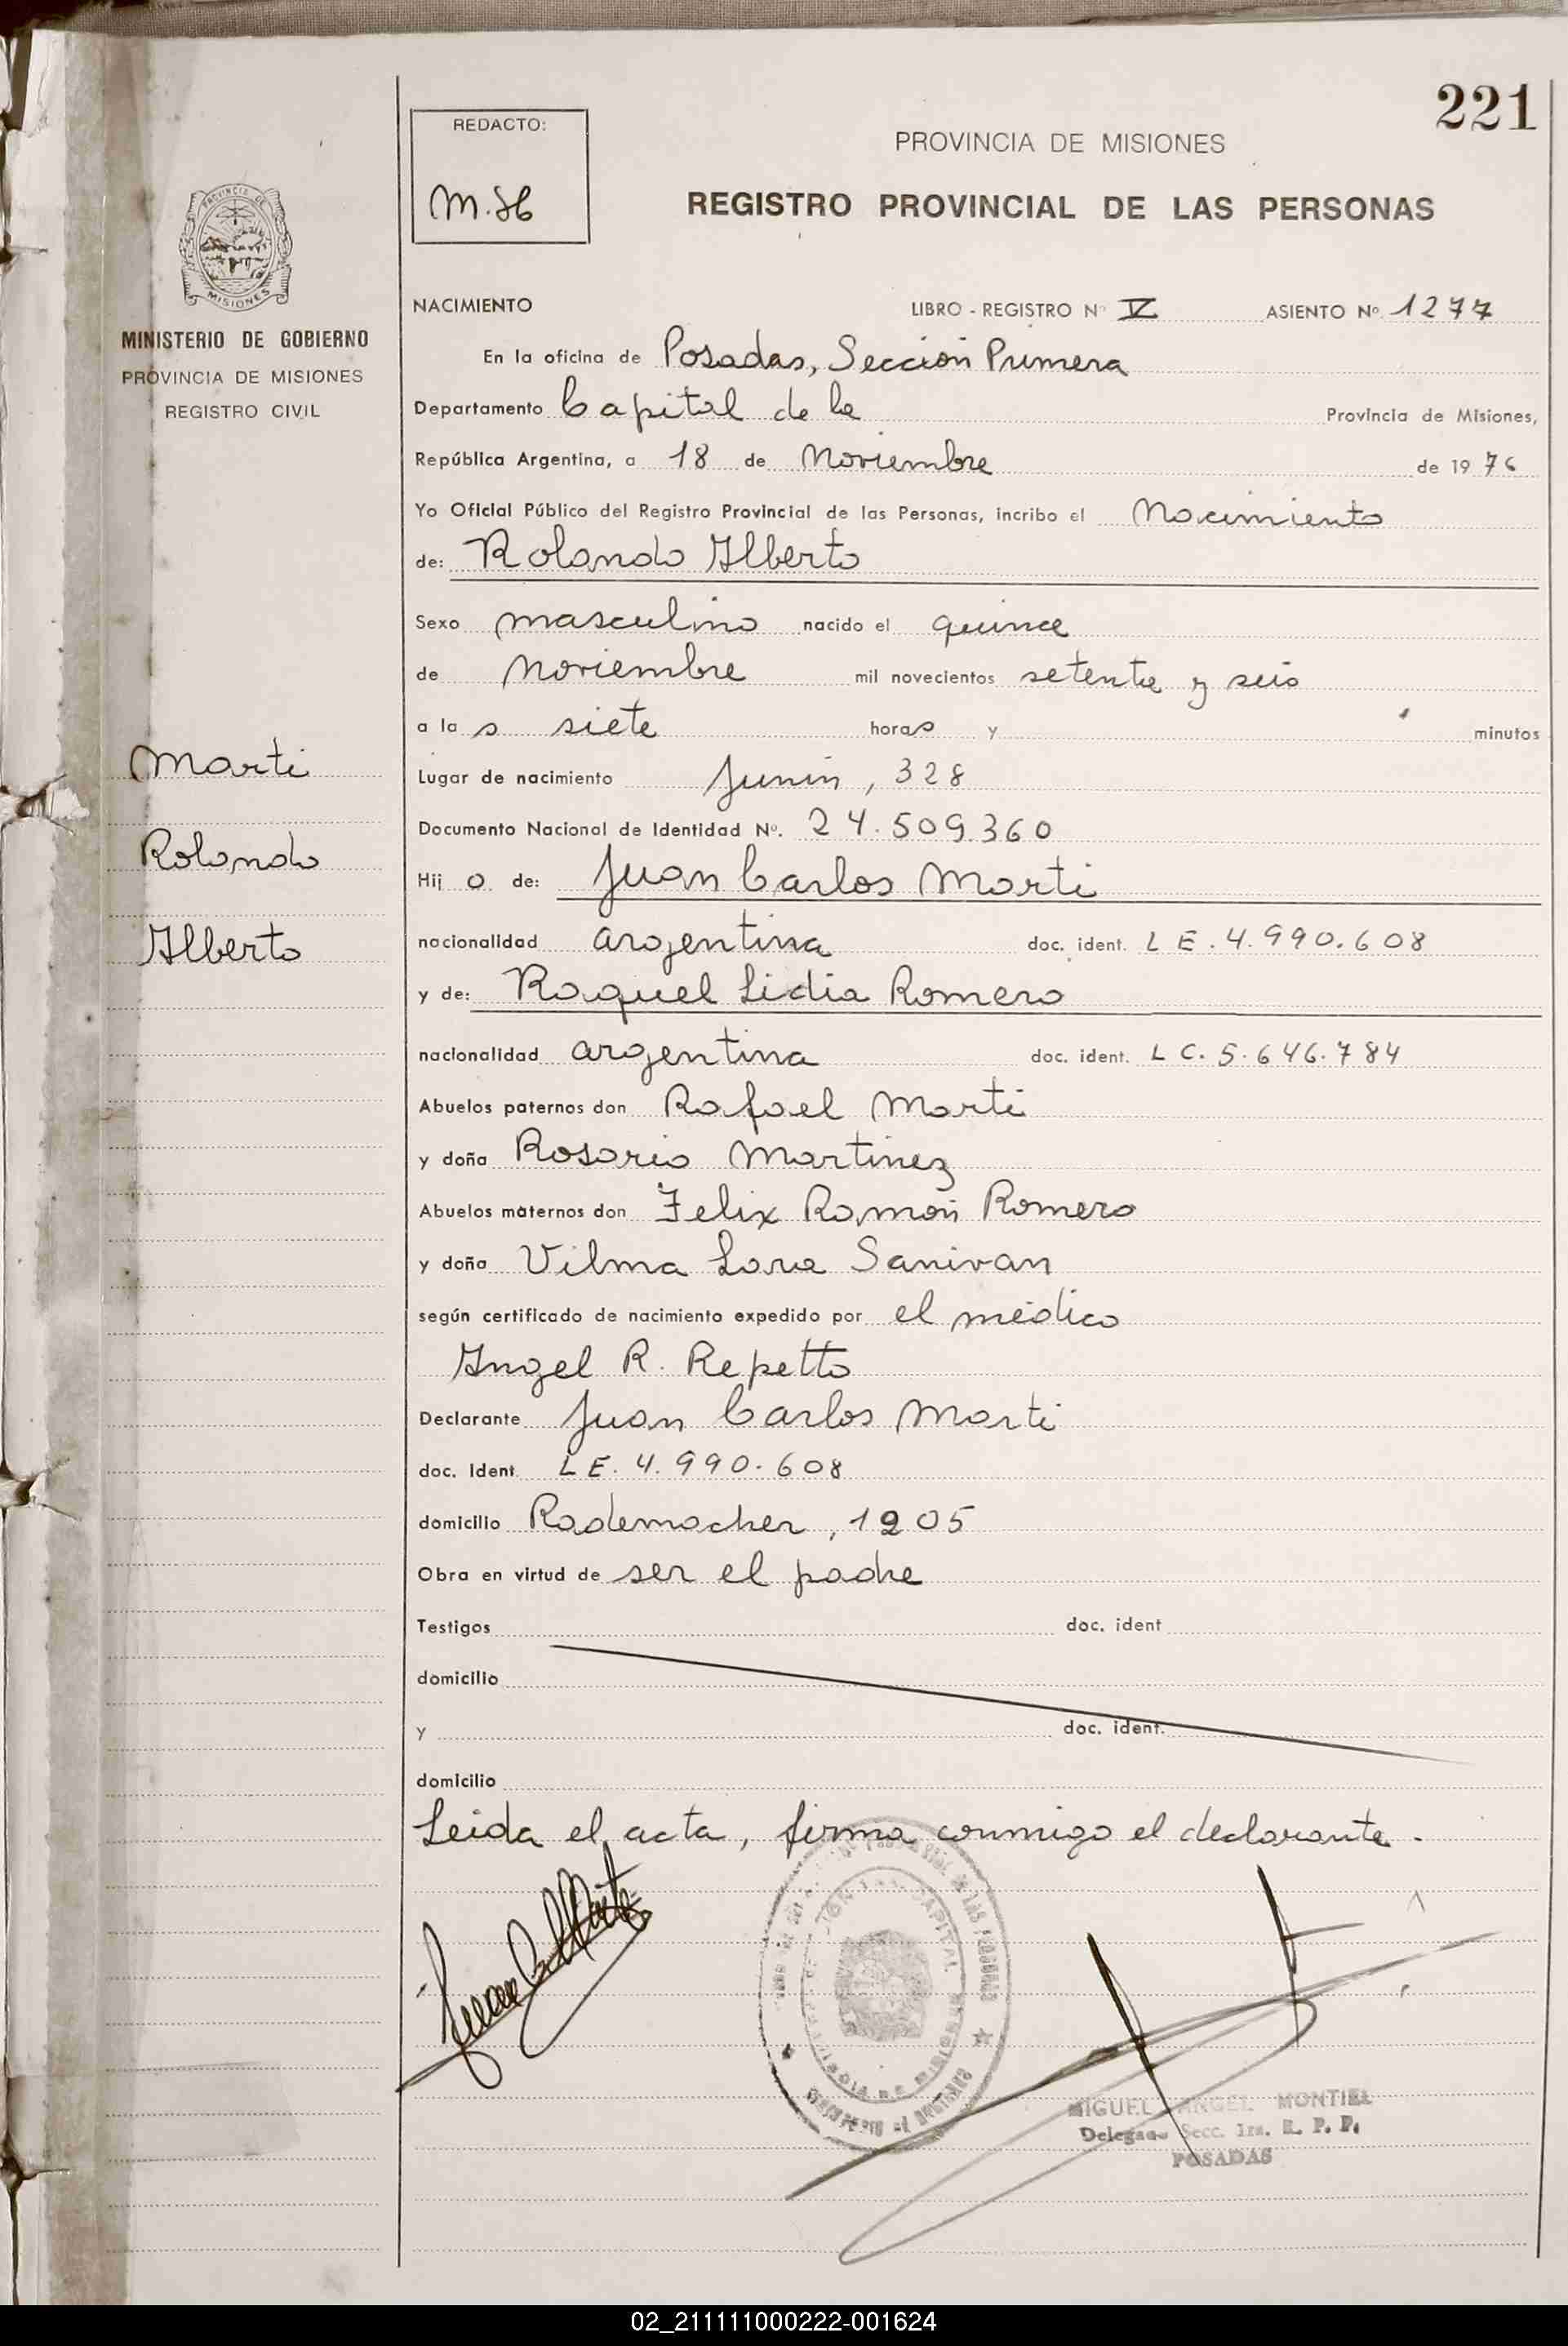 221
REDACTO:
PROVINCIA DE MISIONES
REGISTRO PROVINCIAL DE LAS PERSONAS
PROVINCIA DE
MISIONES
MINISTERIO DE GOBIERNO
PROVINCIA DE MISIONES
REGISTRO CIVIL
NACIMIENTO LIBRO - REGISTRO Nº V ASIENTO Nº 1277
En la oficina de Posadas, Sección Primera
Departamento Capital de la Provincia de Misiones,
República Argentina, a 18 de Noviembre de 1976
Yo Oficial Público del Registro Provincial de las Personas, incribo el Nacimiento
de: Rolando Alberto
Sexo masculino nacido el quince
de Noviembre mil novecientos setenta y seis
a las siete horas y minutos
Marti
Lugar de nacimiento Junín, 328
Documento Nacional de Identidad Nº. 24.509.360
Rolando
Hijo de: Juan Carlos Marti
Alberto
nacionalidad argentina doc. ident. L E. 4.990.608
y de: Raquel Lidia Romero
nacionalidad argentina doc. ident. L C. 5.646.784
Abuelos paternos don Rafael Marti
y doña Rosario Martinez
Abuelos maternos don Felix Ramón Romero
y doña Vilma Sanivan
según certificado de nacimiento expedido por el médico
Angel R. Repetto
Declarante Juan Carlos Marti
doc. Ident L E. 4.990.608
domicilio Rademacher, 1205
Obra en virtud de ser el padre
Testigos doc. ident
domicilio
y doc. ident.
domicilio
Leida el acta, firma conmigo el declarante.
MIGUEL ANGEL MONTIEL
Delegado Secc. 1ra. R. P. P.
POSADAS
02_211111000222-001624